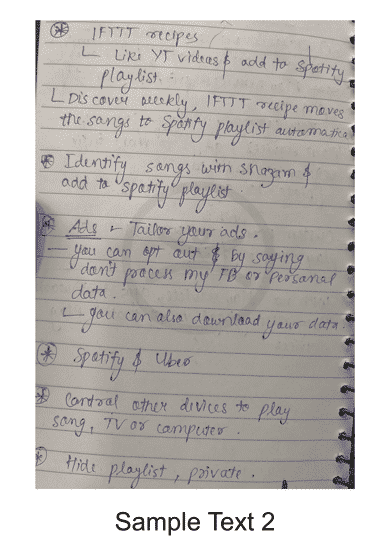 IFTTT recipes
Like YT videos & add to Spotify
playlist.
Discover weekly, IFTTT recipe moves
the songs to Spotify playlist automatica
Identify songs with shazam &
add to spotify playlist.
Ads - Tailor your ads.
- you can opt out & by saying
don't process my FB or Personal
data.
you can also download your data.
Spotify & Uber
Control other devices to play
song, TV or computer.
Hide playlist, private.
Sample Text 2